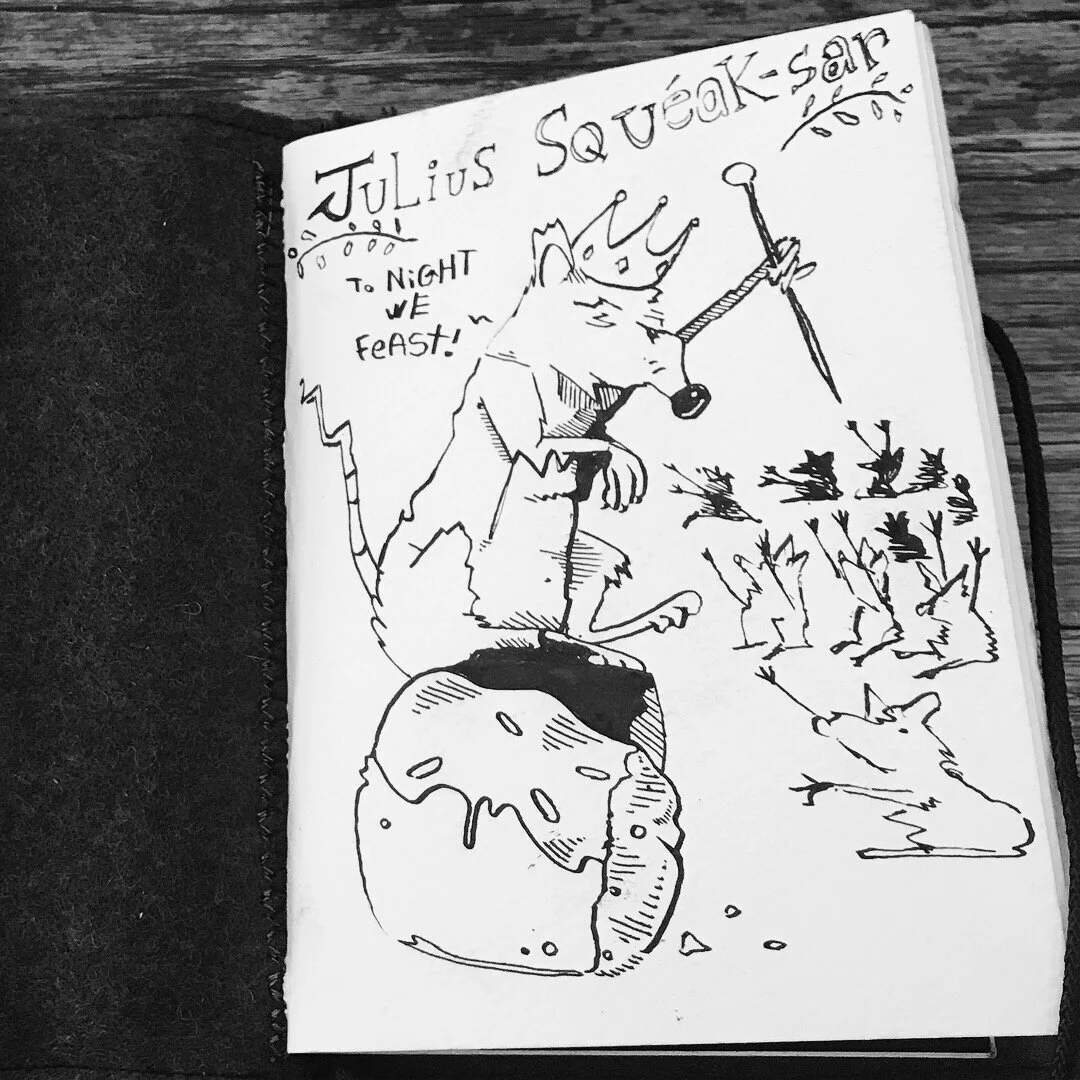 JuLiuS SQUéaK-sar
To NiGHT
WE
FeASt!"